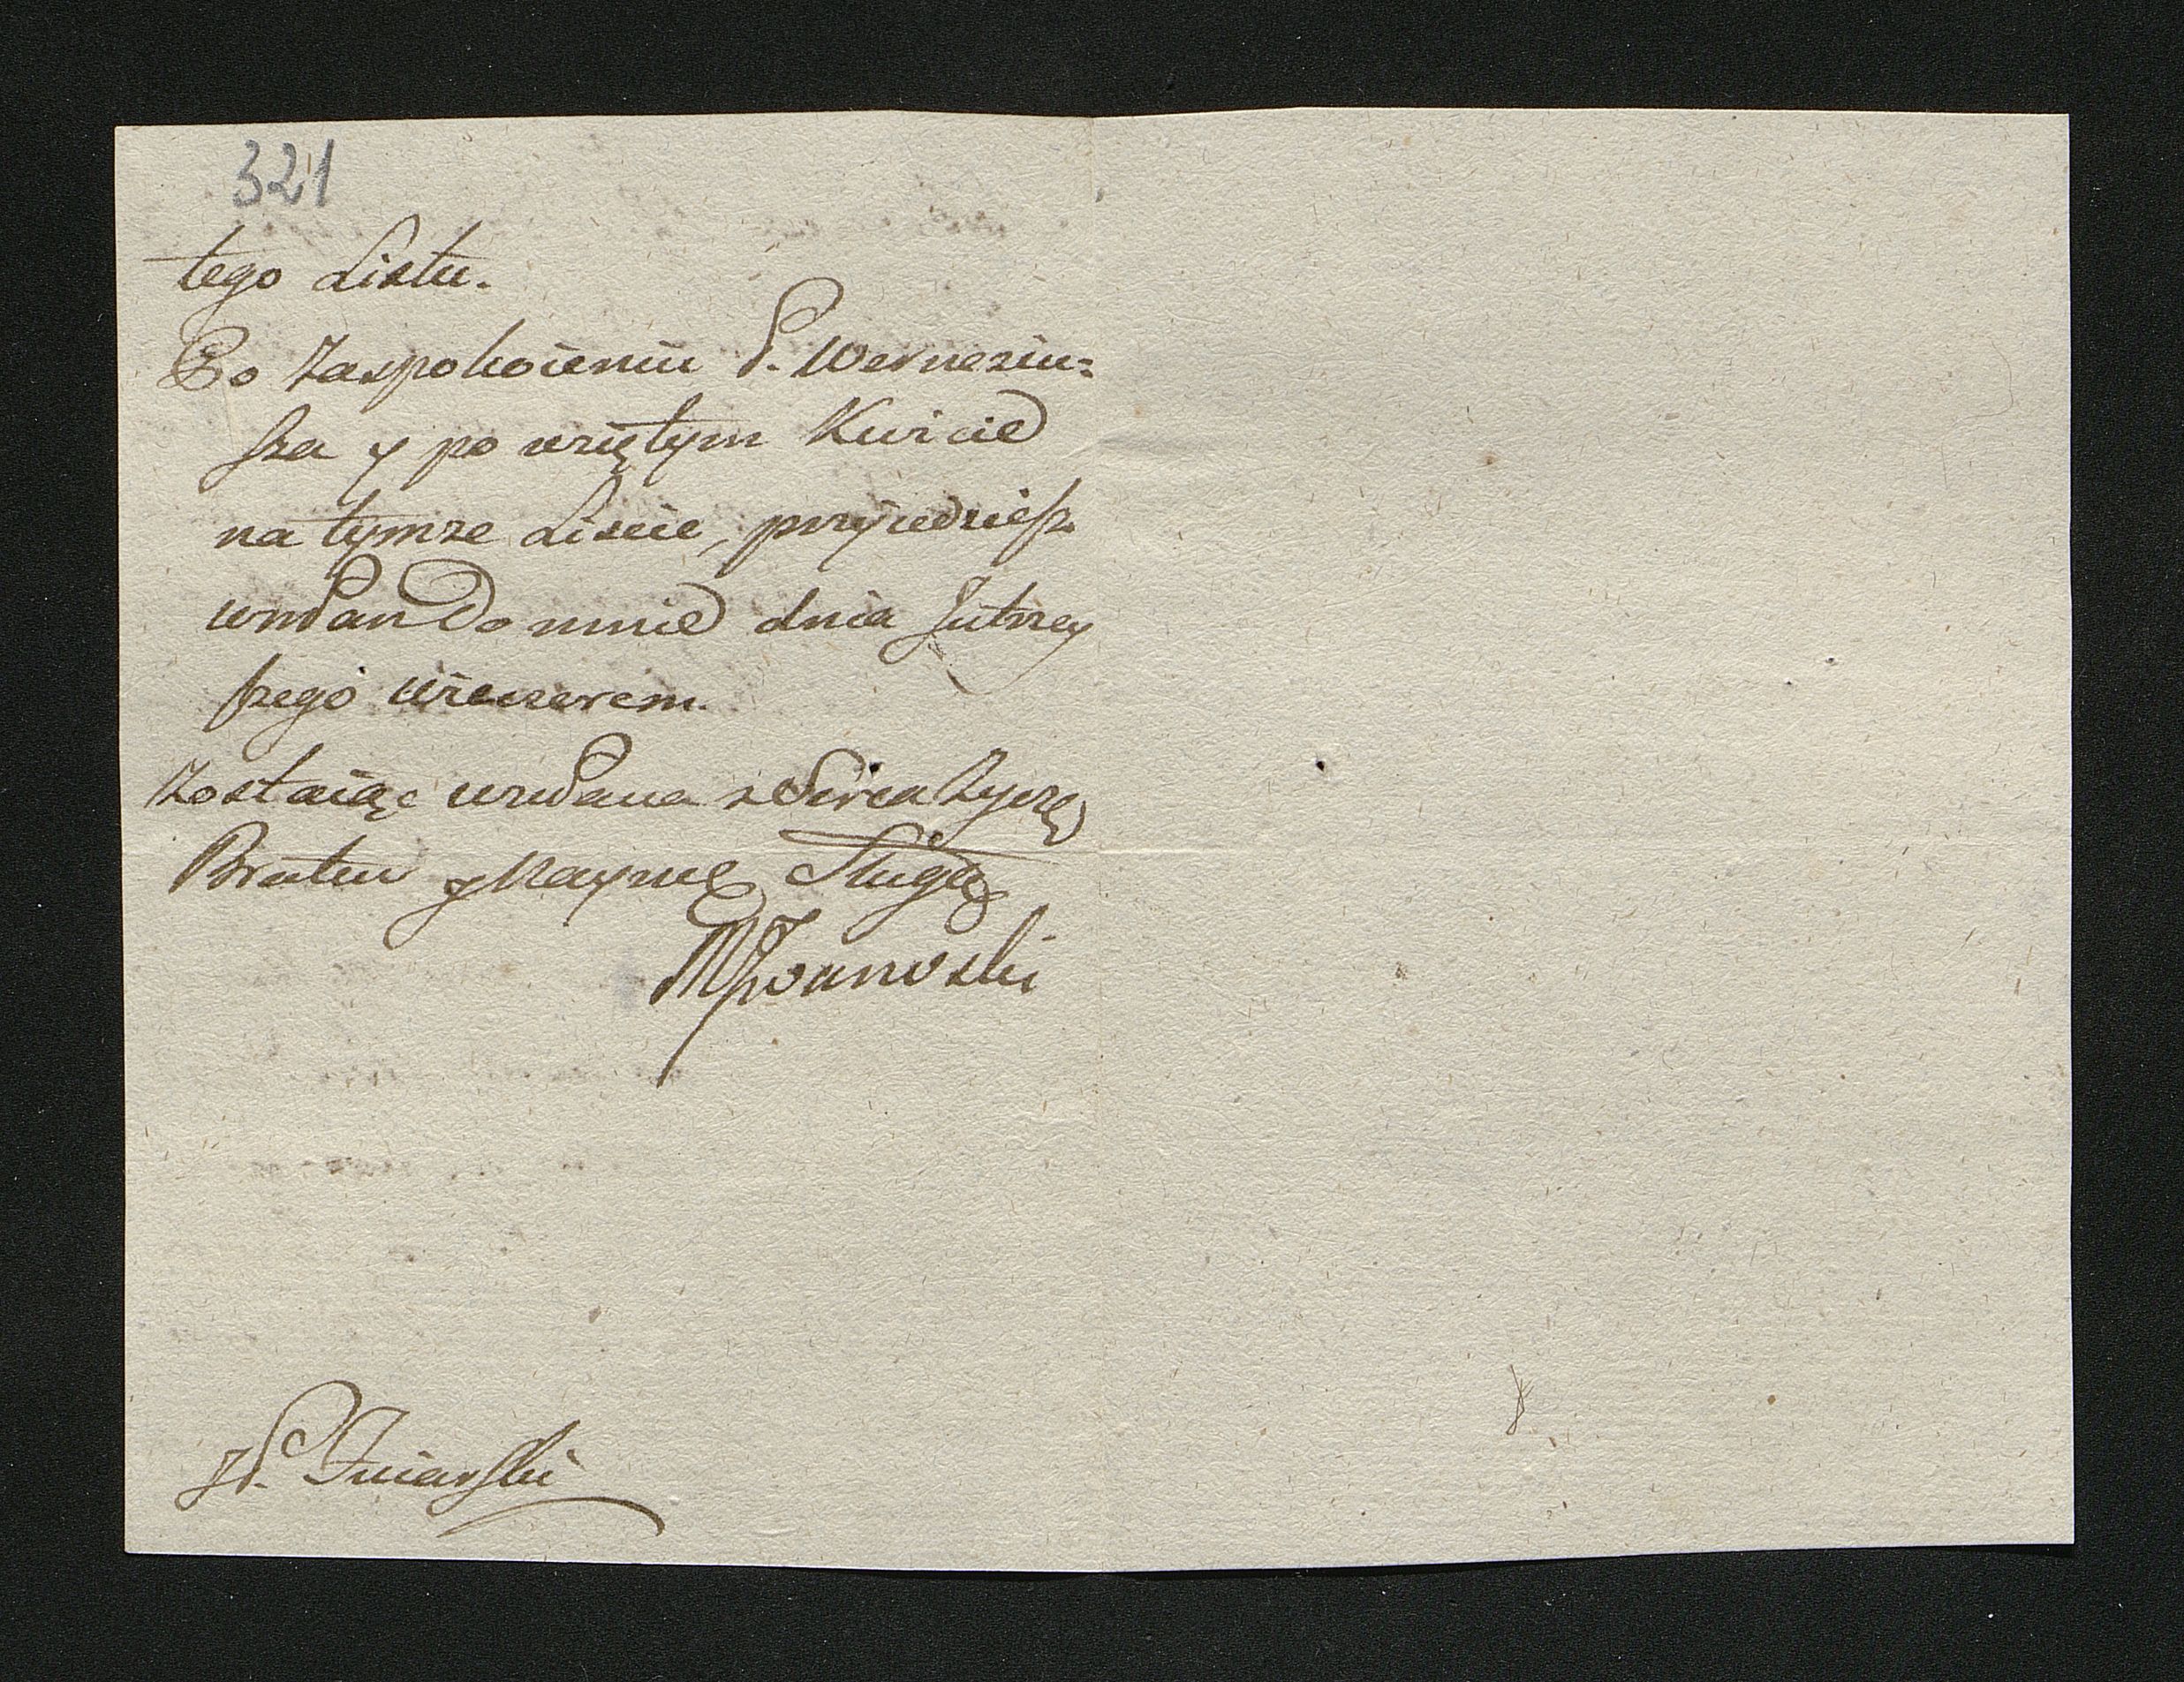 321
tego Listu.
Po Zaspokoieniu P. Wernesiu=
sza y po wziętym Kwicie
na tymze Liscie, przyiedziesz
wmPan Do mnie dnia Jutrzey
szego wieczorem.
Zostaiąc wmPana z Serca Zyczę
Bratem y Nayniż Sługą